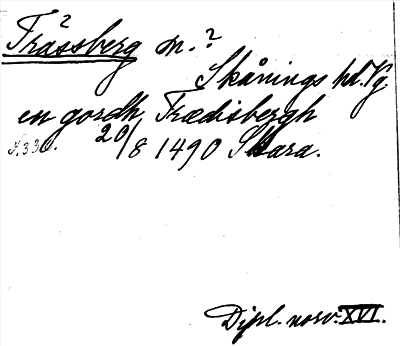 Tråssberg sn.?
Skånings hd. Vg
en gordh Trædisbergh
s. 336. 20/8 1490 Skara.
Dipl. norv. XVI.